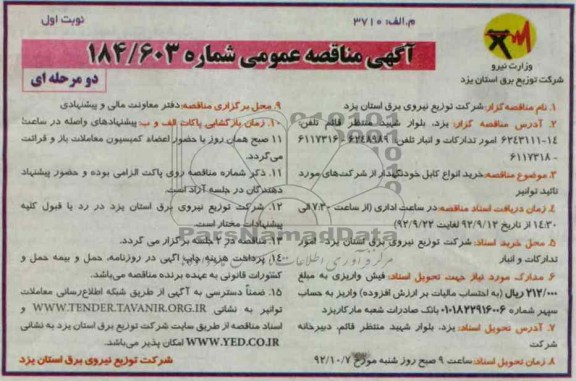 م.الف: ۳۷۱۰
نوبت اول
وزارت نیرو
شرکت توزیع برق استان یزد
آگهی مناقصه عمومی شماره ۱۸۴/۶۰۳
دو مرحله ای
۱. نام مناقصه گزار: شرکت توزیع نیروی برق استان یزد
۲. آدرس مناقصه گزار: یزد، بلوار شهید منتظر قائم تلفن:
۱۴-۶۲۴۳۱۱۱ امور تدارکات و انبار تلفن: ۶۲۴۸۹۸۹ - ۶۱۱۷۳۱۶ -
۶۱۱۷۳۱۸
۳. موضوع مناقصه: خرید انواع کابل خودنگهدار از شرکت‌های مورد
تائید توانیر
۴. زمان دریافت اسناد مناقصه: در ساعت اداری (از ساعت ۷:۳۰ الی
۱۴:۳۰ از تاریخ ۹۲/۹/۱۲ لغایت ۹۲/۹/۲۲)
۵. محل خرید اسناد: شرکت توزیع نیروی برق استان یزد - امور
تدارکات و انبار
۶. مدارک مورد نیاز جهت تحویل اسناد: فیش واریزی به مبلغ
۲۱۲/۰۰۰ ریال (به احتساب مالیات بر ارزش افزوده) واریز به حساب
سپهر شماره ۰۱۰۱۸۲۲۹۱۶۰۰۶ بانک صادرات شعبه مارکاریزد
۷. آدرس تحویل اسناد: یزد، بلوار شهید منتظر قائم، دبیرخانه
شرکت
۸. زمان تحویل اسناد: ساعت ۹ صبح روز شنبه مورخ ۹۲/۱۰/۷
۹. محل برگزاری مناقصه: دفتر معاونت مالی و پیشنهادی
۱۰. زمان بازگشایی پاکات الف و ب: پیشنهادهای واصله در ساعت
۱۱ صبح همان روز با حضور اعضاء کمیسیون معاملات باز و قرائت
می‌گردد.
۱۱. ذکر شماره مناقصه روی پاکت الزامی بوده و حضور پیشنهاد
دهندگان در جلسه آزاد است.
۱۲. شرکت توزیع نیروی برق استان یزد در رد یا قبول کلیه
پیشنهادات مختار است.
۱۳. مناقصه در ۲ جلسه برگزار می گردد.
۱۴. پرداخت هزینه چاپ آگهی در روزنامه، حمل و بیمه حمل و
کسورات قانونی به عهده برنده مناقصه می‌باشد.
۱۵. ضمناً دسترسی به آگهی از طریق شبکه اطلاع‌رسانی معاملات
توانیر به نشانی WWW.TENDER.TAVANIR.ORG.IR و
اسناد مناقصه از طریق سایت شرکت توزیع برق استان یزد به نشانی
WWW.YED.CO.IR امکان پذیر می‌باشد.
شرکت توزیع نیروی برق استان یزد
ParsNamadData